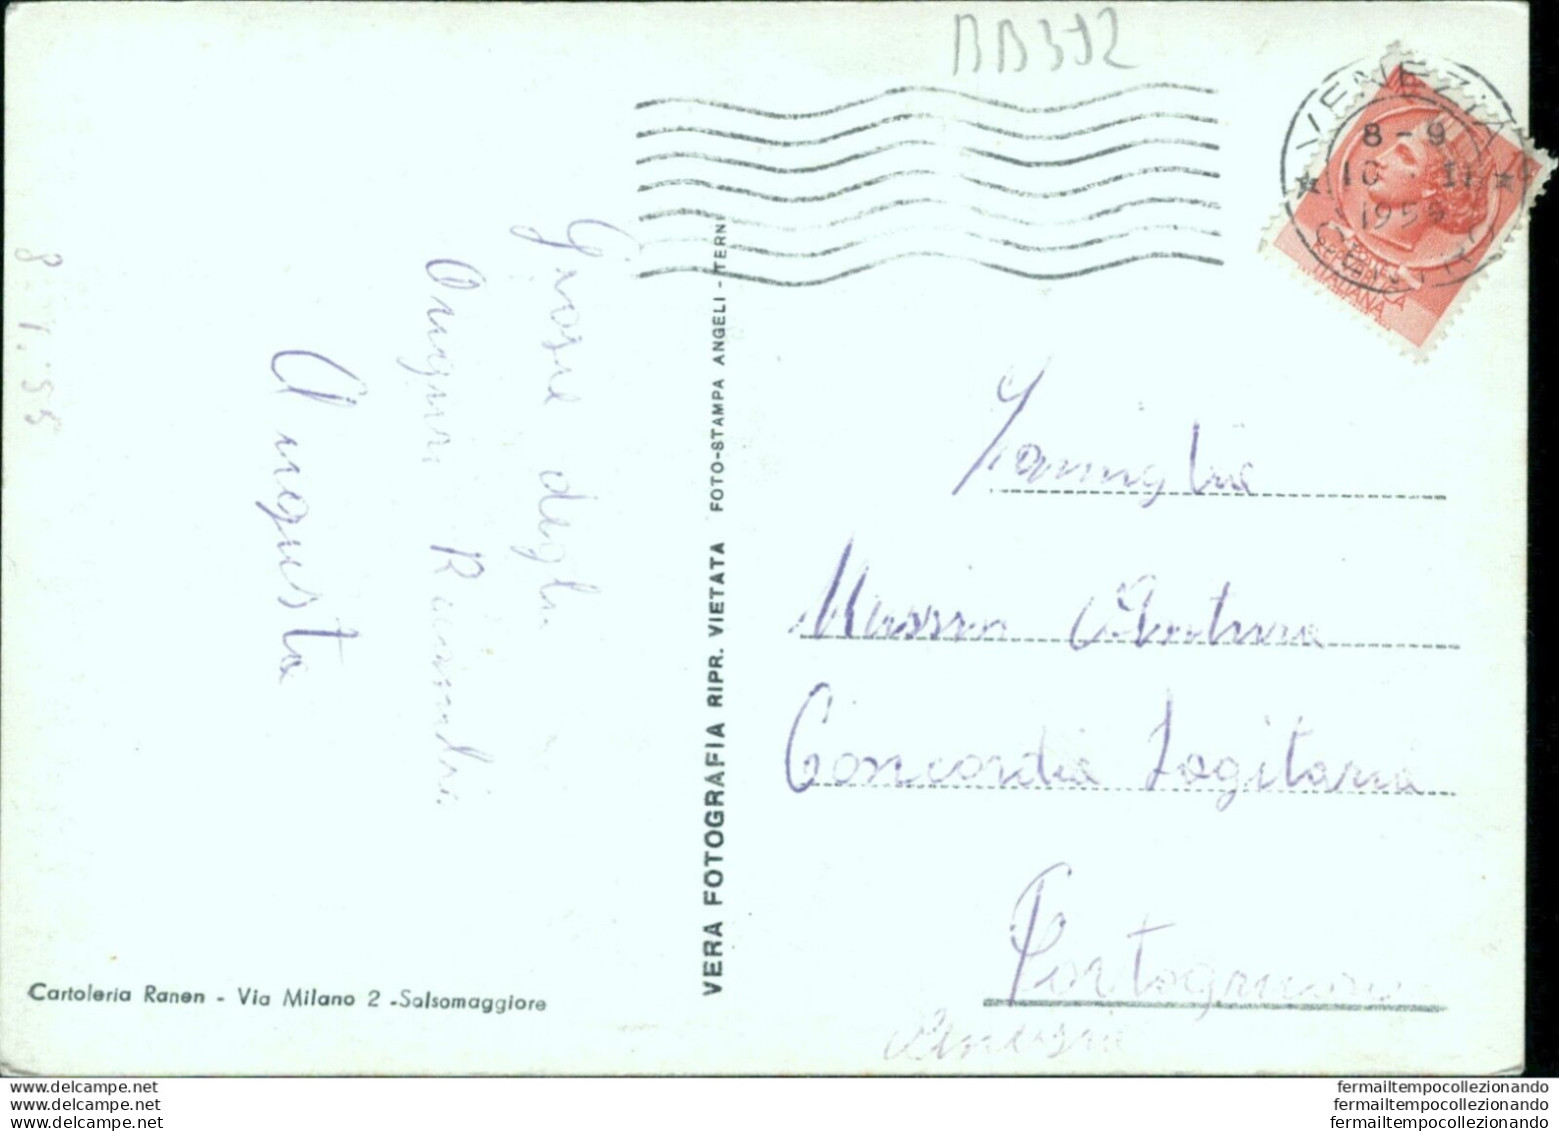 BB392
VENEZIA
8-9
1955
REPUBBLICA
ITALIANA
8.1.55
degli
Auguri
Augusta
Famiglia
Mussin
Concordia Sagitaria
Portogruaro
Venezia
VERA FOTOGRAFIA RIPR. VIETATA FOTO-STAMPA ANGELI - TERNI
Cartoleria Ranen - Via Milano 2 - Salsomaggiore
www.delcampe.net
www.delcampe.net
www.delcampe.net
fermailtempocollezionando
fermailtempocollezionando
fermailtempocollezionando